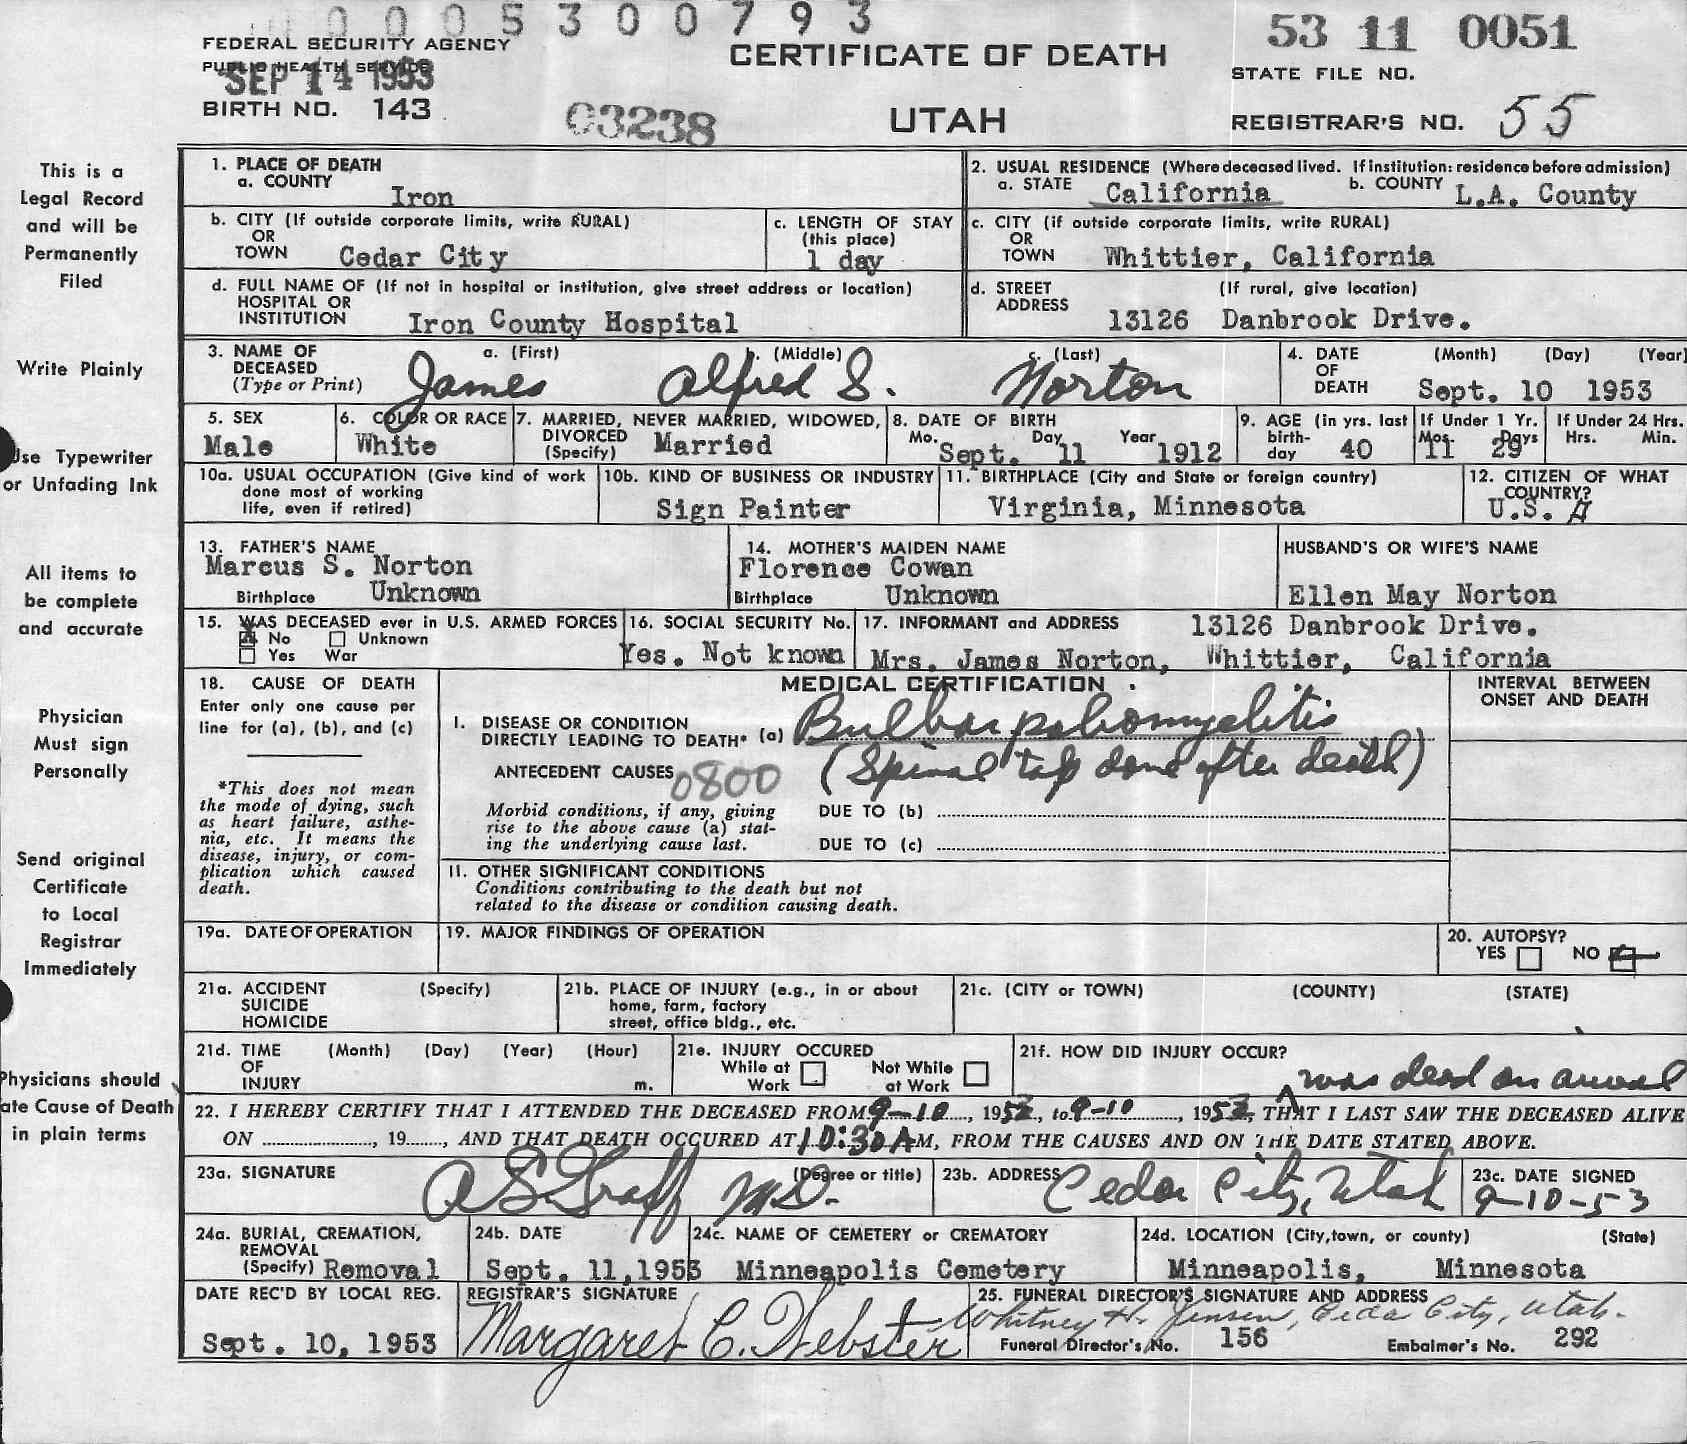 0 0 0 5 3 0 0 7 9 3
FEDERAL SECURITY AGENCY
PUBLIC HEALTH SERVICE
SEP 14 1953
BIRTH NO. 143
03238
CERTIFICATE OF DEATH
UTAH
53 11 0051
STATE FILE NO.
REGISTRAR'S NO. 55
This is a
Legal Record
and will be
Permanently
Filed
Write Plainly
Use Typewriter
or Unfading Ink
All items to
be complete
and accurate
Physician
Must sign
Personally
Send original
Certificate
to Local
Registrar
Immediately
Physicians should
ate Cause of Death
in plain terms
1. PLACE OF DEATH
a. COUNTY Iron
2. USUAL RESIDENCE (Where deceased lived. If institution: residence before admission)
a. STATE California b. COUNTY L.A. County
b. CITY (If outside corporate limits, write RURAL)
OR
TOWN Cedar City
c. LENGTH OF STAY
(this place)
1 day
c. CITY (if outside corporate limits, write RURAL)
OR
TOWN Whittier, California
d. FULL NAME OF (If not in hospital or institution, give street address or location)
HOSPITAL OR
INSTITUTION Iron County Hospital
d. STREET (If rural, give location)
ADDRESS
13126 Danbrook Drive.
3. NAME OF a. (First) b. (Middle) c. (Last)
DECEASED
(Type or Print) James Alfred S. Norton
4. DATE (Month) (Day) (Year)
OF
DEATH Sept. 10 1953
5. SEX
Male
6. COLOR OR RACE
White
7. MARRIED, NEVER MARRIED, WIDOWED,
DIVORCED
(Specify) Married
8. DATE OF BIRTH
Mo. Day Year
Sept. 11 1912
9. AGE (in yrs. last
birth-
day 40
If Under 1 Yr.
Mos. Days
11 29
If Under 24 Hrs.
Hrs. Min.
10a. USUAL OCCUPATION (Give kind of work
done most of working
life, even if retired)
10b. KIND OF BUSINESS OR INDUSTRY
Sign Painter
11. BIRTHPLACE (City and State or foreign country)
Virginia, Minnesota
12. CITIZEN OF WHAT
COUNTRY?
U.S. A
13. FATHER'S NAME
Marcus S. Norton
Birthplace Unknown
14. MOTHER'S MAIDEN NAME
Florence Cowan
Birthplace Unknown
HUSBAND'S OR WIFE'S NAME
Ellen May Norton
15. WAS DECEASED ever in U.S. ARMED FORCES
No Unknown
Yes War
16. SOCIAL SECURITY No.
Yes. Not known
17. INFORMANT and ADDRESS 13126 Danbrook Drive.
Mrs. James Norton, Whittier, California
18. CAUSE OF DEATH
Enter only one cause per
line for (a), (b), and (c)
*This does not mean
the mode of dying, such
as heart failure, asthe-
nia, etc. It means the
disease, injury, or com-
plication which caused
death.
MEDICAL CERTIFICATION
INTERVAL BETWEEN
ONSET AND DEATH
I. DISEASE OR CONDITION
DIRECTLY LEADING TO DEATH* (a) Bulbar poliomyelitis
ANTECEDENT CAUSES 0800 (Spinal tap done after death)
Morbid conditions, if any, giving
rise to the above cause (a) stat-
ing the underlying cause last.
DUE TO (b)
DUE TO (c)
11. OTHER SIGNIFICANT CONDITIONS
Conditions contributing to the death but not
related to the disease or condition causing death.
19a. DATE OF OPERATION
19. MAJOR FINDINGS OF OPERATION
20. AUTOPSY?
YES NO
21a. ACCIDENT (Specify)
SUICIDE
HOMICIDE
21b. PLACE OF INJURY (e.g., in or about
home, farm, factory
street, office bldg., etc.
21c. (CITY or TOWN) (COUNTY) (STATE)
21d. TIME (Month) (Day) (Year) (Hour)
OF
INJURY m.
21e. INJURY OCCURED
While at Work Not While at Work
21f. HOW DID INJURY OCCUR?
was dead on arrival
22. I HEREBY CERTIFY THAT I ATTENDED THE DECEASED FROM 9-10, 1953, to 9-10, 1953, THAT I LAST SAW THE DECEASED ALIVE
ON , 19 , AND THAT DEATH OCCURED AT 10:30 AM, FROM THE CAUSES AND ON THE DATE STATED ABOVE.
23a. SIGNATURE (Degree or title)
A S Graff M.D.
23b. ADDRESS Cedar City, Utah
23c. DATE SIGNED
9-10-53
24a. BURIAL, CREMATION,
REMOVAL
(Specify) Removal
24b. DATE
Sept. 11,1953
24c. NAME OF CEMETERY or CREMATORY
Minneapolis Cemetery
24d. LOCATION (City,town, or county) (State)
Minneapolis, Minnesota
DATE REC'D BY LOCAL REG.
Sept. 10, 1953
REGISTRAR'S SIGNATURE
Margaret C. Webster
25. FUNERAL DIRECTOR'S SIGNATURE AND ADDRESS
Whitney H. Jensen, Ceda City, Utah.
Funeral Director's No. 156 Embalmer's No. 292